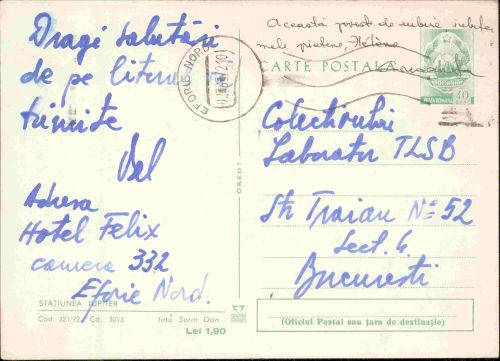 Dragi salutări
de pe litoral
trimite
Adresa
Hotel Felix
camera 332
Eforie Nord.
STAȚIUNEA JUPITER
Cod. 321/72 Cd. 3013 foto Sorin Dan
Lei 1,90
EFORIE-NORD
Această poveste de iubire
mele prietene, Hélène
CARTE POSTALA
POSTA ROMANA
40
Colectivului
Laborator TLSB
Str Traian Nº 52
Sect. 4.
Bucuresti
(Oficiul Postal sau țara de destinație)